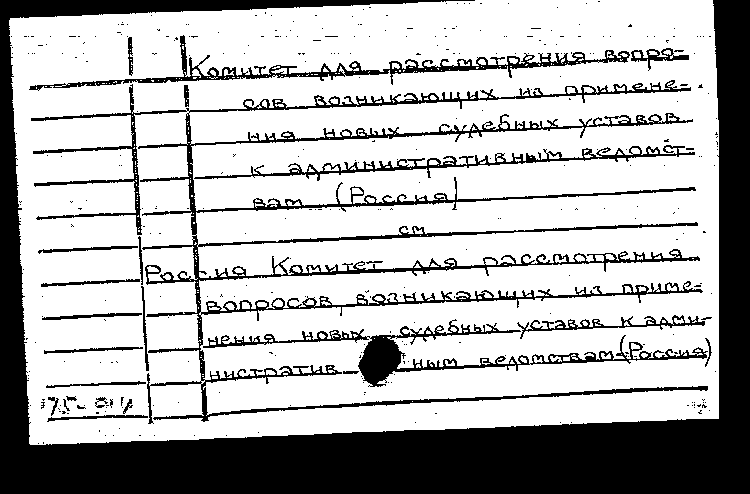 Комитет для рассмотрения вопро-
сов возникающих из примене-
ния новых судебных уставов
к административным ведомст-
вам (Россия)
см
Россия Комитет для рассмотрения
вопросов, возникающих из приме-
нения новых судебных уставов к адми-
нистратив ным ведомствам (Россия)